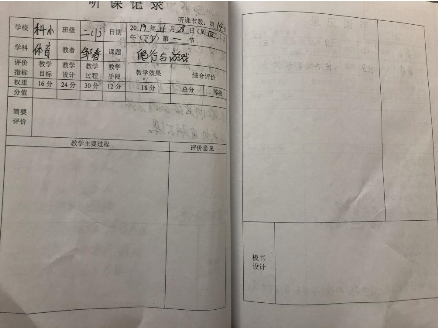 听课记录
学校 科小 班级 二(1) 日期 2019年11月28日
学科 体育 教者 课题 爬行与游戏
评价指标 教学目标 教学设计 教学过程 教学手段 教学效果 综合评价
权重 16分 24分 30分 12分 18分 总分 等第
分值
简要评价
教学主要过程 评价意见
板书设计